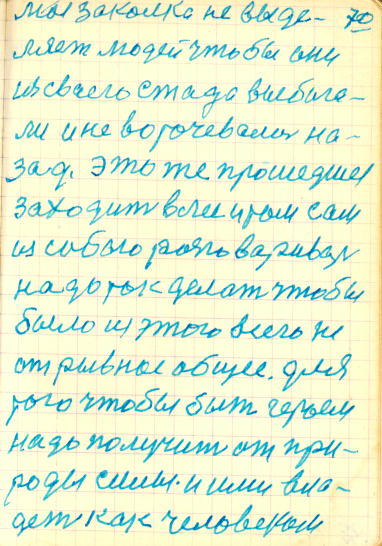 мы заколка не выде- 70
ляет людей чтобы они
из своего стада выбига-
ли и не ворочевались на-
зад. Это же прошедшей
заходит всем и том сам
из собого разговаривал
надо так делат чтобы
было из этого всего не
отрывное общее. для
того чтобы быт героем
надо получит от при-
роды силы. и ими вла-
дет как человеком